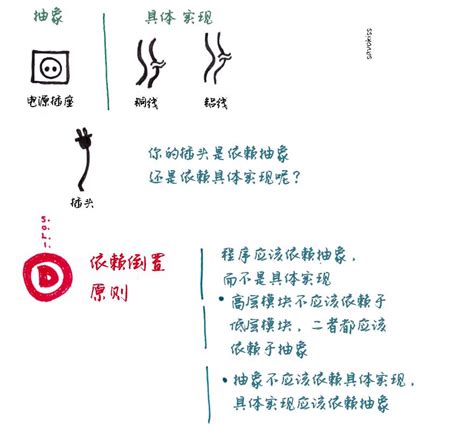 抽象
具体实现
电源插座
铜线
铝线
插头
你的插头是依赖抽象
还是依赖具体实现呢？
S.O.L.I.
D
依赖倒置
原则
程序应该依赖抽象，
而不是具体实现
• 高层模块不应该依赖于
低层模块，二者都应该
依赖于抽象
• 抽象不应该依赖具体实现，
具体实现应该依赖抽象